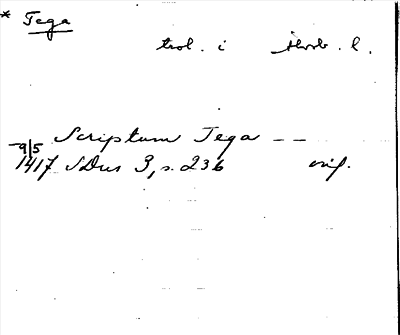 * Tega
trol. i Skövde h.
9/5 Scriptum Tega — —
1417 SDns 3, s. 236 orig.